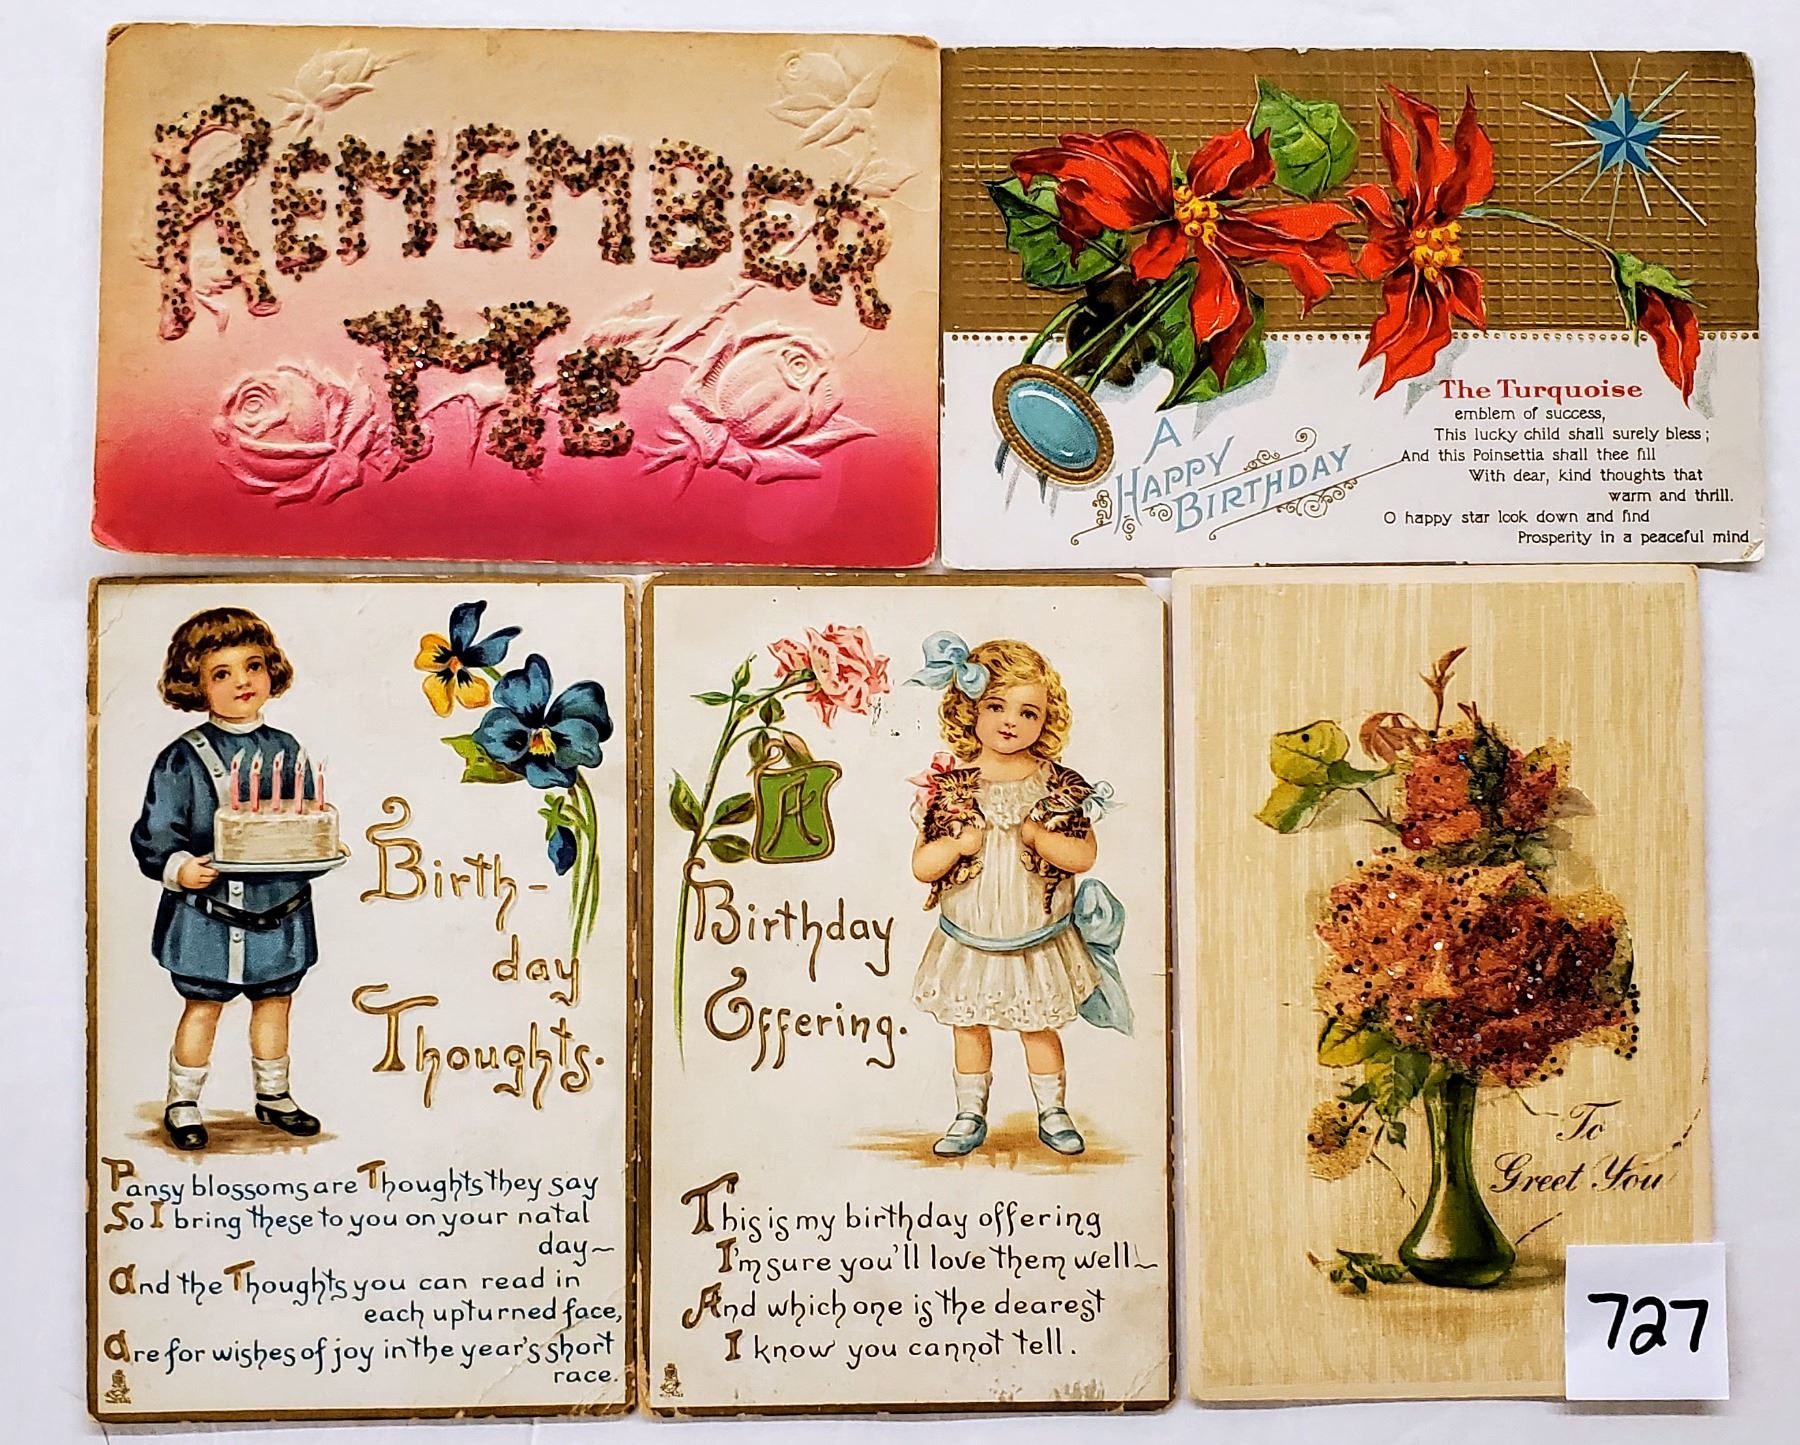 REMEMBER
ME
The Turquoise
emblem of success,
This lucky child shall surely bless;
And this Poinsettia shall thee fill
With dear, kind thoughts that
warm and thrill.
O happy star look down and find
Prosperity in a peaceful mind
A
HAPPY
BIRTHDAY
Birth-
day
Thoughts.
Pansy blossoms are Thoughts they say
So I bring these to you on your natal
day~
And the Thoughts you can read in
each upturned face,
Are for wishes of joy in the year's short
race.
A
Birthday
Offering.
This is my birthday offering
I'm sure you'll love them well~
And which one is the dearest
I know you cannot tell.
To
Greet You
727